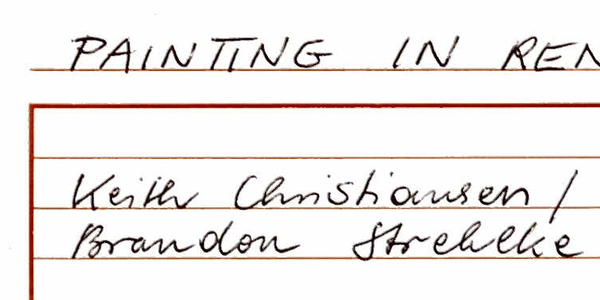 PAINTING IN REN
Keith Christiansen /
Brandon Strehlke